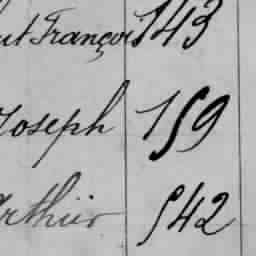 ut François 143
Joseph 159
Arthur 542